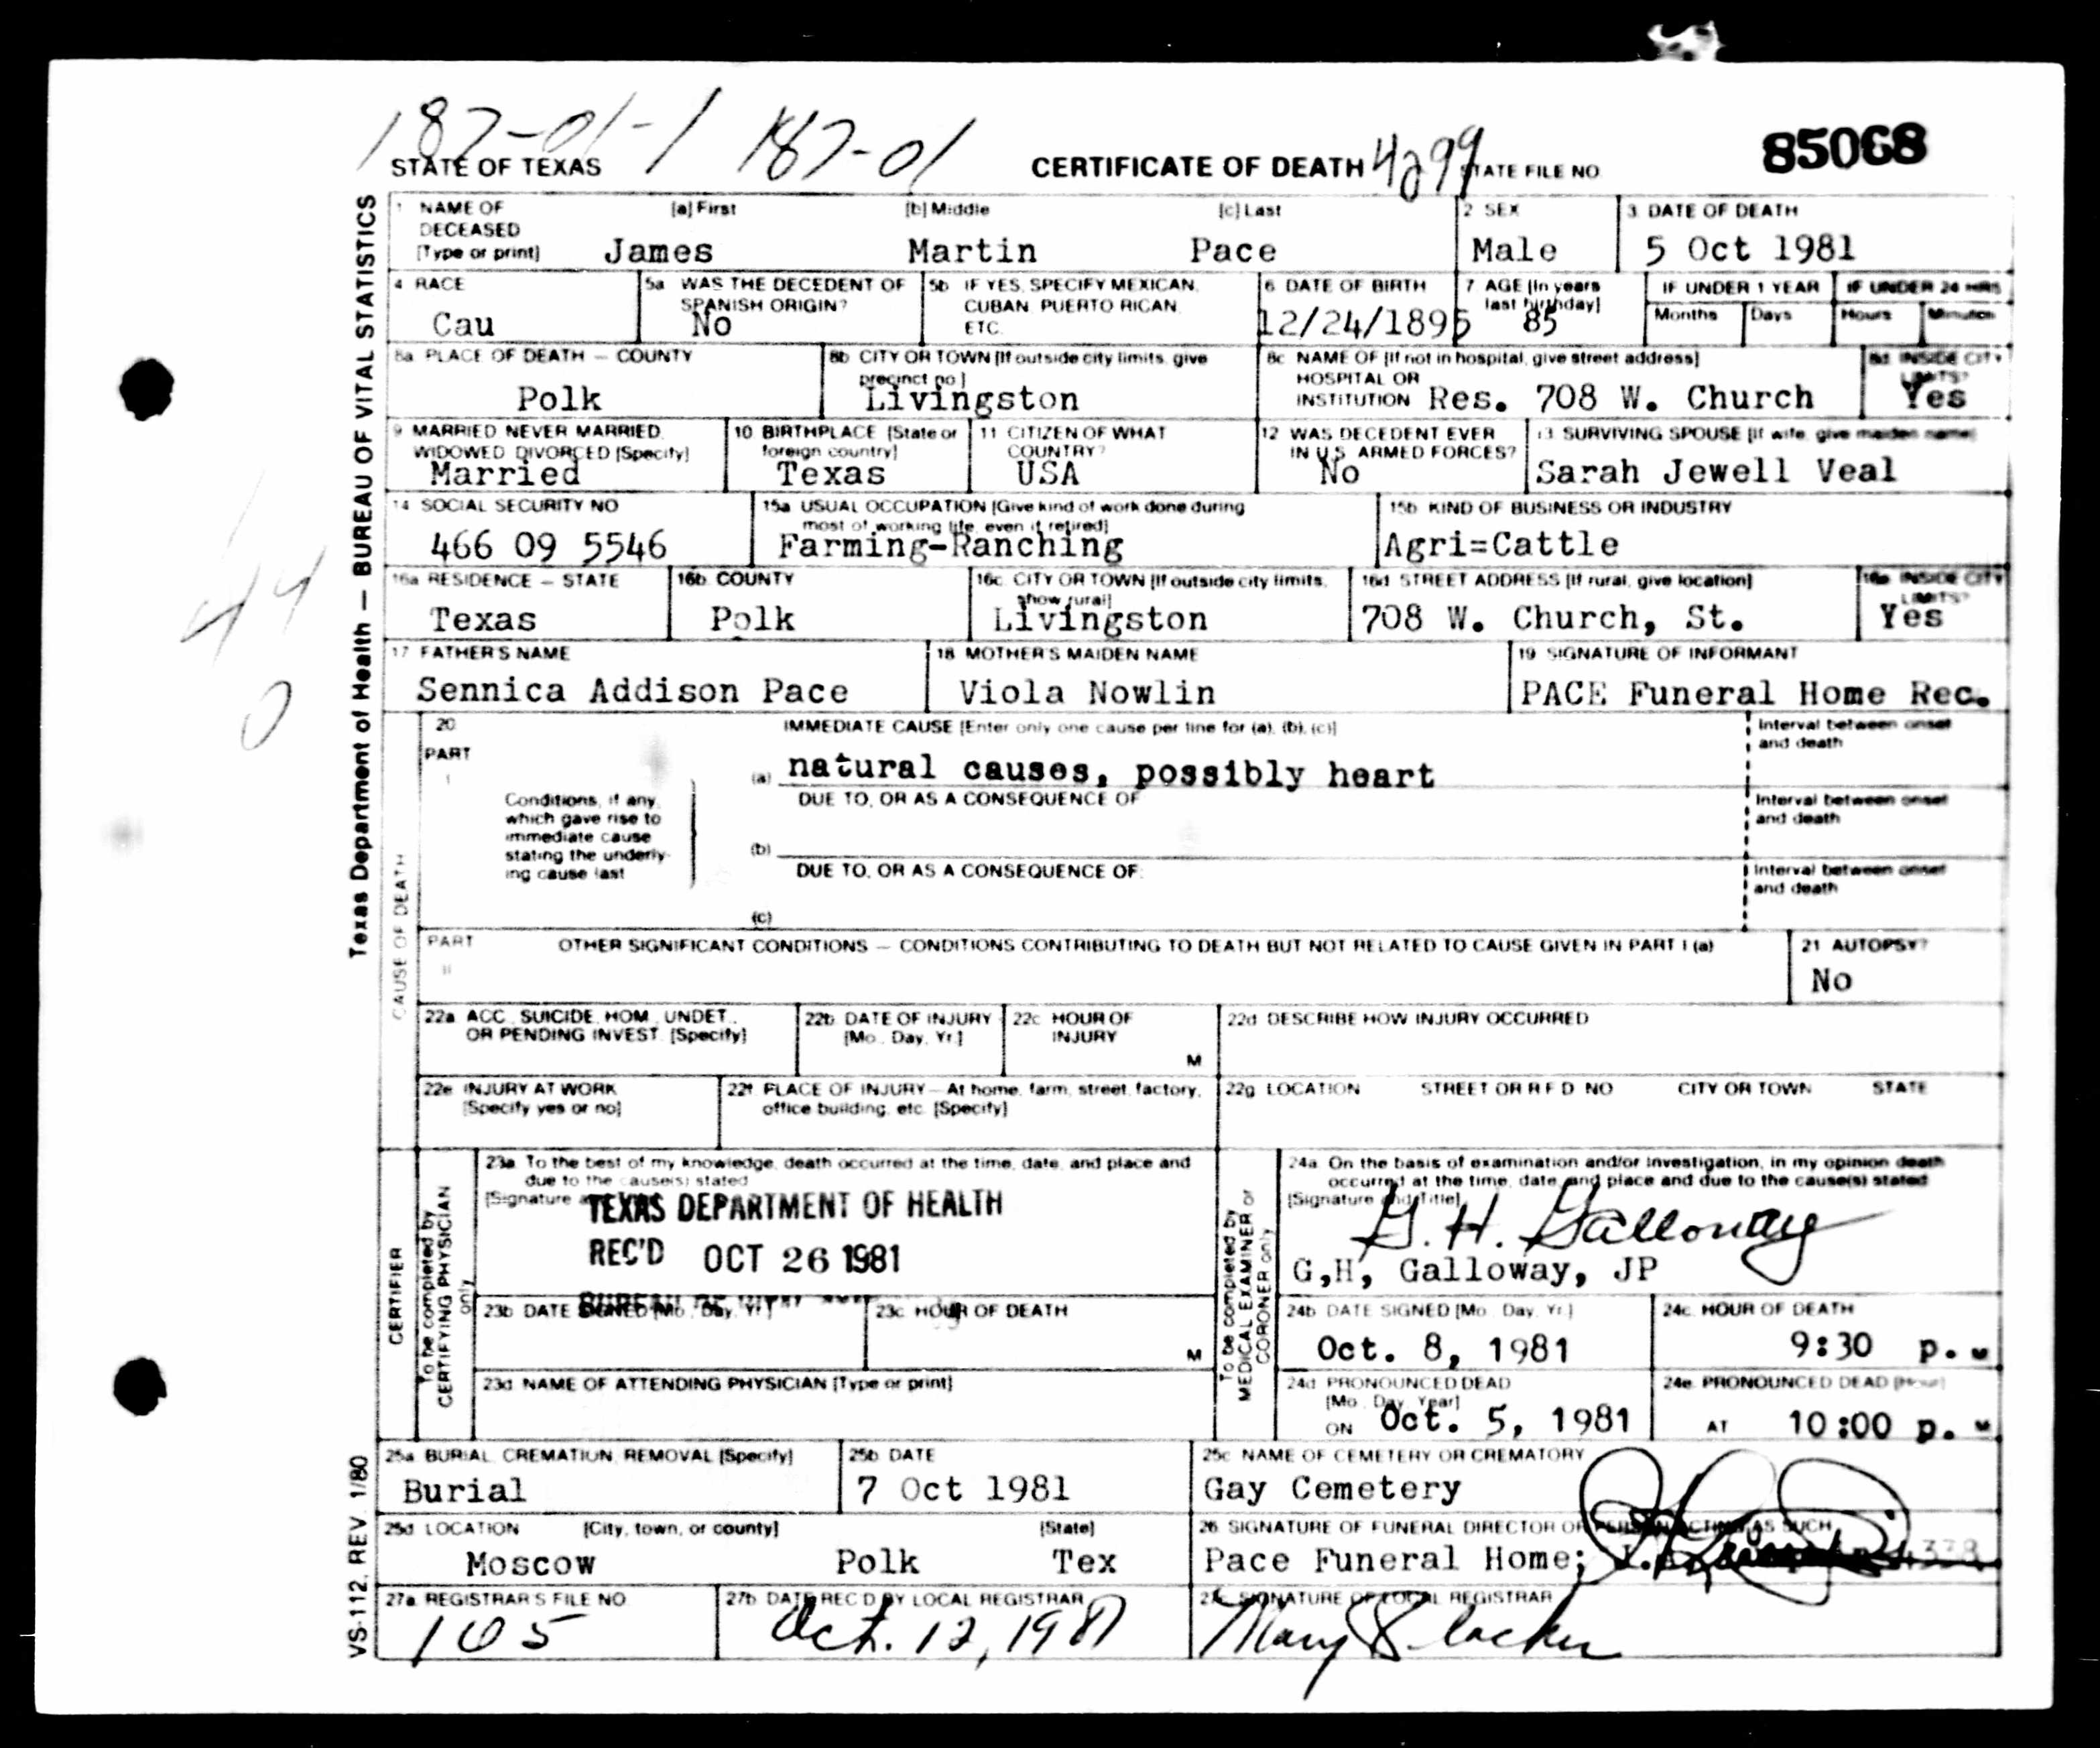 187-01-1 187-01
STATE OF TEXAS CERTIFICATE OF DEATH 4299 STATE FILE NO 85068
Texas Department of Health — BUREAU OF VITAL STATISTICS
1 NAME OF DECEASED [Type or print] [a] First [b] Middle [c] Last 2 SEX 3 DATE OF DEATH
James Martin Pace Male 5 Oct 1981
4 RACE 5a WAS THE DECEDENT OF SPANISH ORIGIN? 5b IF YES, SPECIFY MEXICAN, CUBAN, PUERTO RICAN, ETC. 6 DATE OF BIRTH 7 AGE [In years last birthday] IF UNDER 1 YEAR IF UNDER 24 HRS
Months Days Hours Minutes
Cau No 12/24/1895 85
8a PLACE OF DEATH — COUNTY 8b CITY OR TOWN [If outside city limits, give precinct no.] 8c NAME OF [If not in hospital, give street address] HOSPITAL OR INSTITUTION 8d INSIDE CITY LIMITS?
Polk Livingston Res. 708 W. Church Yes
9 MARRIED NEVER MARRIED, WIDOWED DIVORCED [Specify] 10 BIRTHPLACE [State or foreign country] 11 CITIZEN OF WHAT COUNTRY? 12 WAS DECEDENT EVER IN U.S. ARMED FORCES? 13 SURVIVING SPOUSE [If wife, give maiden name]
Married Texas USA No Sarah Jewell Veal
14 SOCIAL SECURITY NO 15a USUAL OCCUPATION [Give kind of work done during most of working life, even if retired] 15b KIND OF BUSINESS OR INDUSTRY
466 09 5546 Farming-Ranching Agri=Cattle
16a RESIDENCE — STATE 16b COUNTY 16c CITY OR TOWN [If outside city limits, show rural] 16d STREET ADDRESS [If rural, give location] 16e INSIDE CITY LIMITS?
Texas Polk Livingston 708 W. Church, St. Yes
17 FATHER'S NAME 18 MOTHER'S MAIDEN NAME 19 SIGNATURE OF INFORMANT
Sennica Addison Pace Viola Nowlin PACE Funeral Home Rec.
44
0
CAUSE OF DEATH
20 PART I IMMEDIATE CAUSE [Enter only one cause per line for (a), (b), (c)] Interval between onset and death
(a) natural causes, possibly heart
Conditions, if any, which gave rise to immediate cause stating the underlying cause last
DUE TO, OR AS A CONSEQUENCE OF Interval between onset and death
(b)
DUE TO, OR AS A CONSEQUENCE OF: Interval between onset and death
(c)
PART II OTHER SIGNIFICANT CONDITIONS — CONDITIONS CONTRIBUTING TO DEATH BUT NOT RELATED TO CAUSE GIVEN IN PART I (a) 21 AUTOPSY?
No
22a ACC., SUICIDE, HOM., UNDET., OR PENDING INVEST. [Specify] 22b DATE OF INJURY [Mo., Day, Yr.] 22c HOUR OF INJURY M 22d DESCRIBE HOW INJURY OCCURRED
22e INJURY AT WORK [Specify yes or no] 22f PLACE OF INJURY — At home, farm, street, factory, office building, etc. [Specify] 22g LOCATION STREET OR R F D NO CITY OR TOWN STATE
CERTIFIER
To be completed by CERTIFYING PHYSICIAN only
23a To the best of my knowledge, death occurred at the time, date, and place and due to the cause(s) stated
[Signature
TEXAS DEPARTMENT OF HEALTH
REC'D OCT 26 1981
BUREAU OF
23b DATE SIGNED [Mo., Day, Yr.] 23c HOUR OF DEATH M
23d NAME OF ATTENDING PHYSICIAN [Type or print]
To be completed by MEDICAL EXAMINER or CORONER only
24a On the basis of examination and/or investigation, in my opinion death occurred at the time, date, and place and due to the cause(s) stated
[Signature and Title]
G. H. Galloway
G,H, Galloway, JP
24b DATE SIGNED [Mo., Day, Yr.] 24c HOUR OF DEATH
Oct. 8, 1981 9:30 p. M
24d PRONOUNCED DEAD [Mo., Day, Year] 24e PRONOUNCED DEAD [Hour]
ON Oct. 5, 1981 AT 10:00 p. M
25a BURIAL, CREMATION, REMOVAL [Specify] 25b DATE 25c NAME OF CEMETERY OR CREMATORY
Burial 7 Oct 1981 Gay Cemetery
25d LOCATION [City, town, or county] [State] 26 SIGNATURE OF FUNERAL DIRECTOR OR PERSON ACTING AS SUCH
Moscow Polk Tex Pace Funeral Home;
27a REGISTRAR'S FILE NO 27b DATE REC'D BY LOCAL REGISTRAR 27c SIGNATURE OF LOCAL REGISTRAR
105 Oct. 12, 1981
VS-112, REV. 1/80